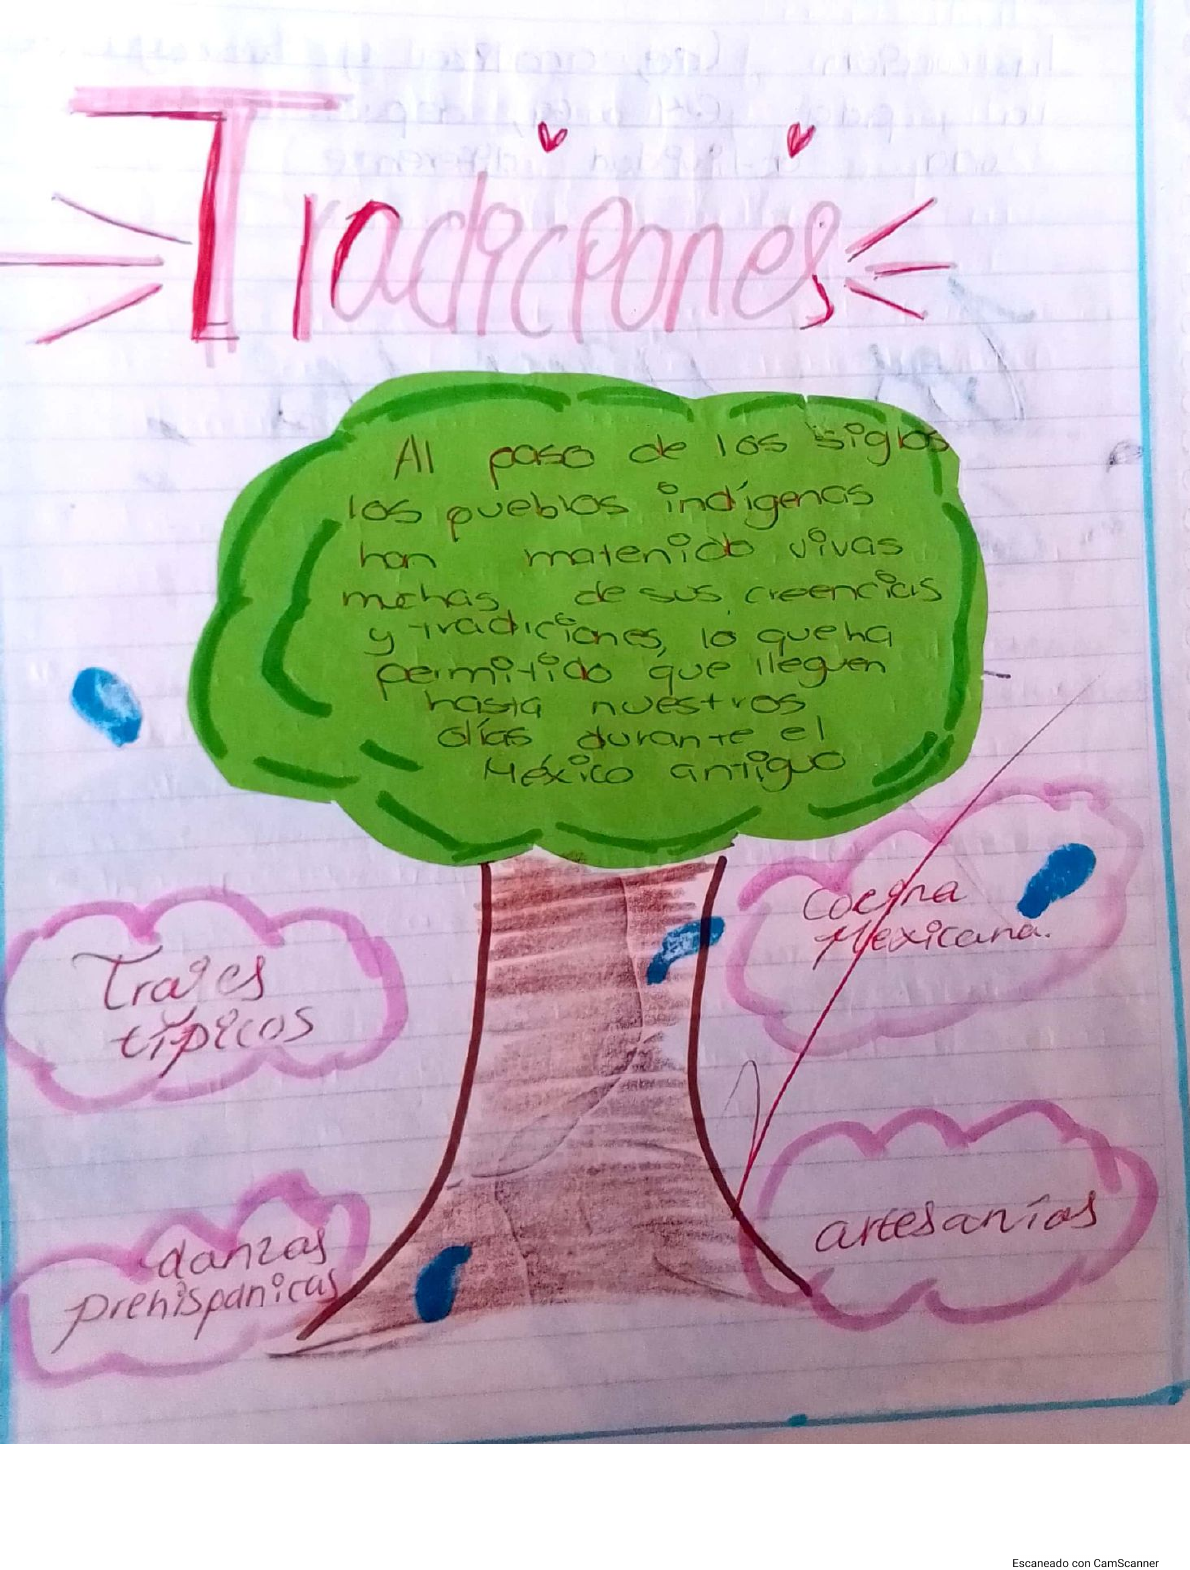 Tradiciones
Al paso de los siglos
los pueblos indígenas
han matenido vivas
muchas de sus creencias
y tradiciones, lo que ha
permitido que lleguen
hasta nuestros
días durante el
México antiguo
Trajes
típicos
Cocina
Mexicana.
danzas
prehispánicas
artesanías
Escaneado con CamScanner